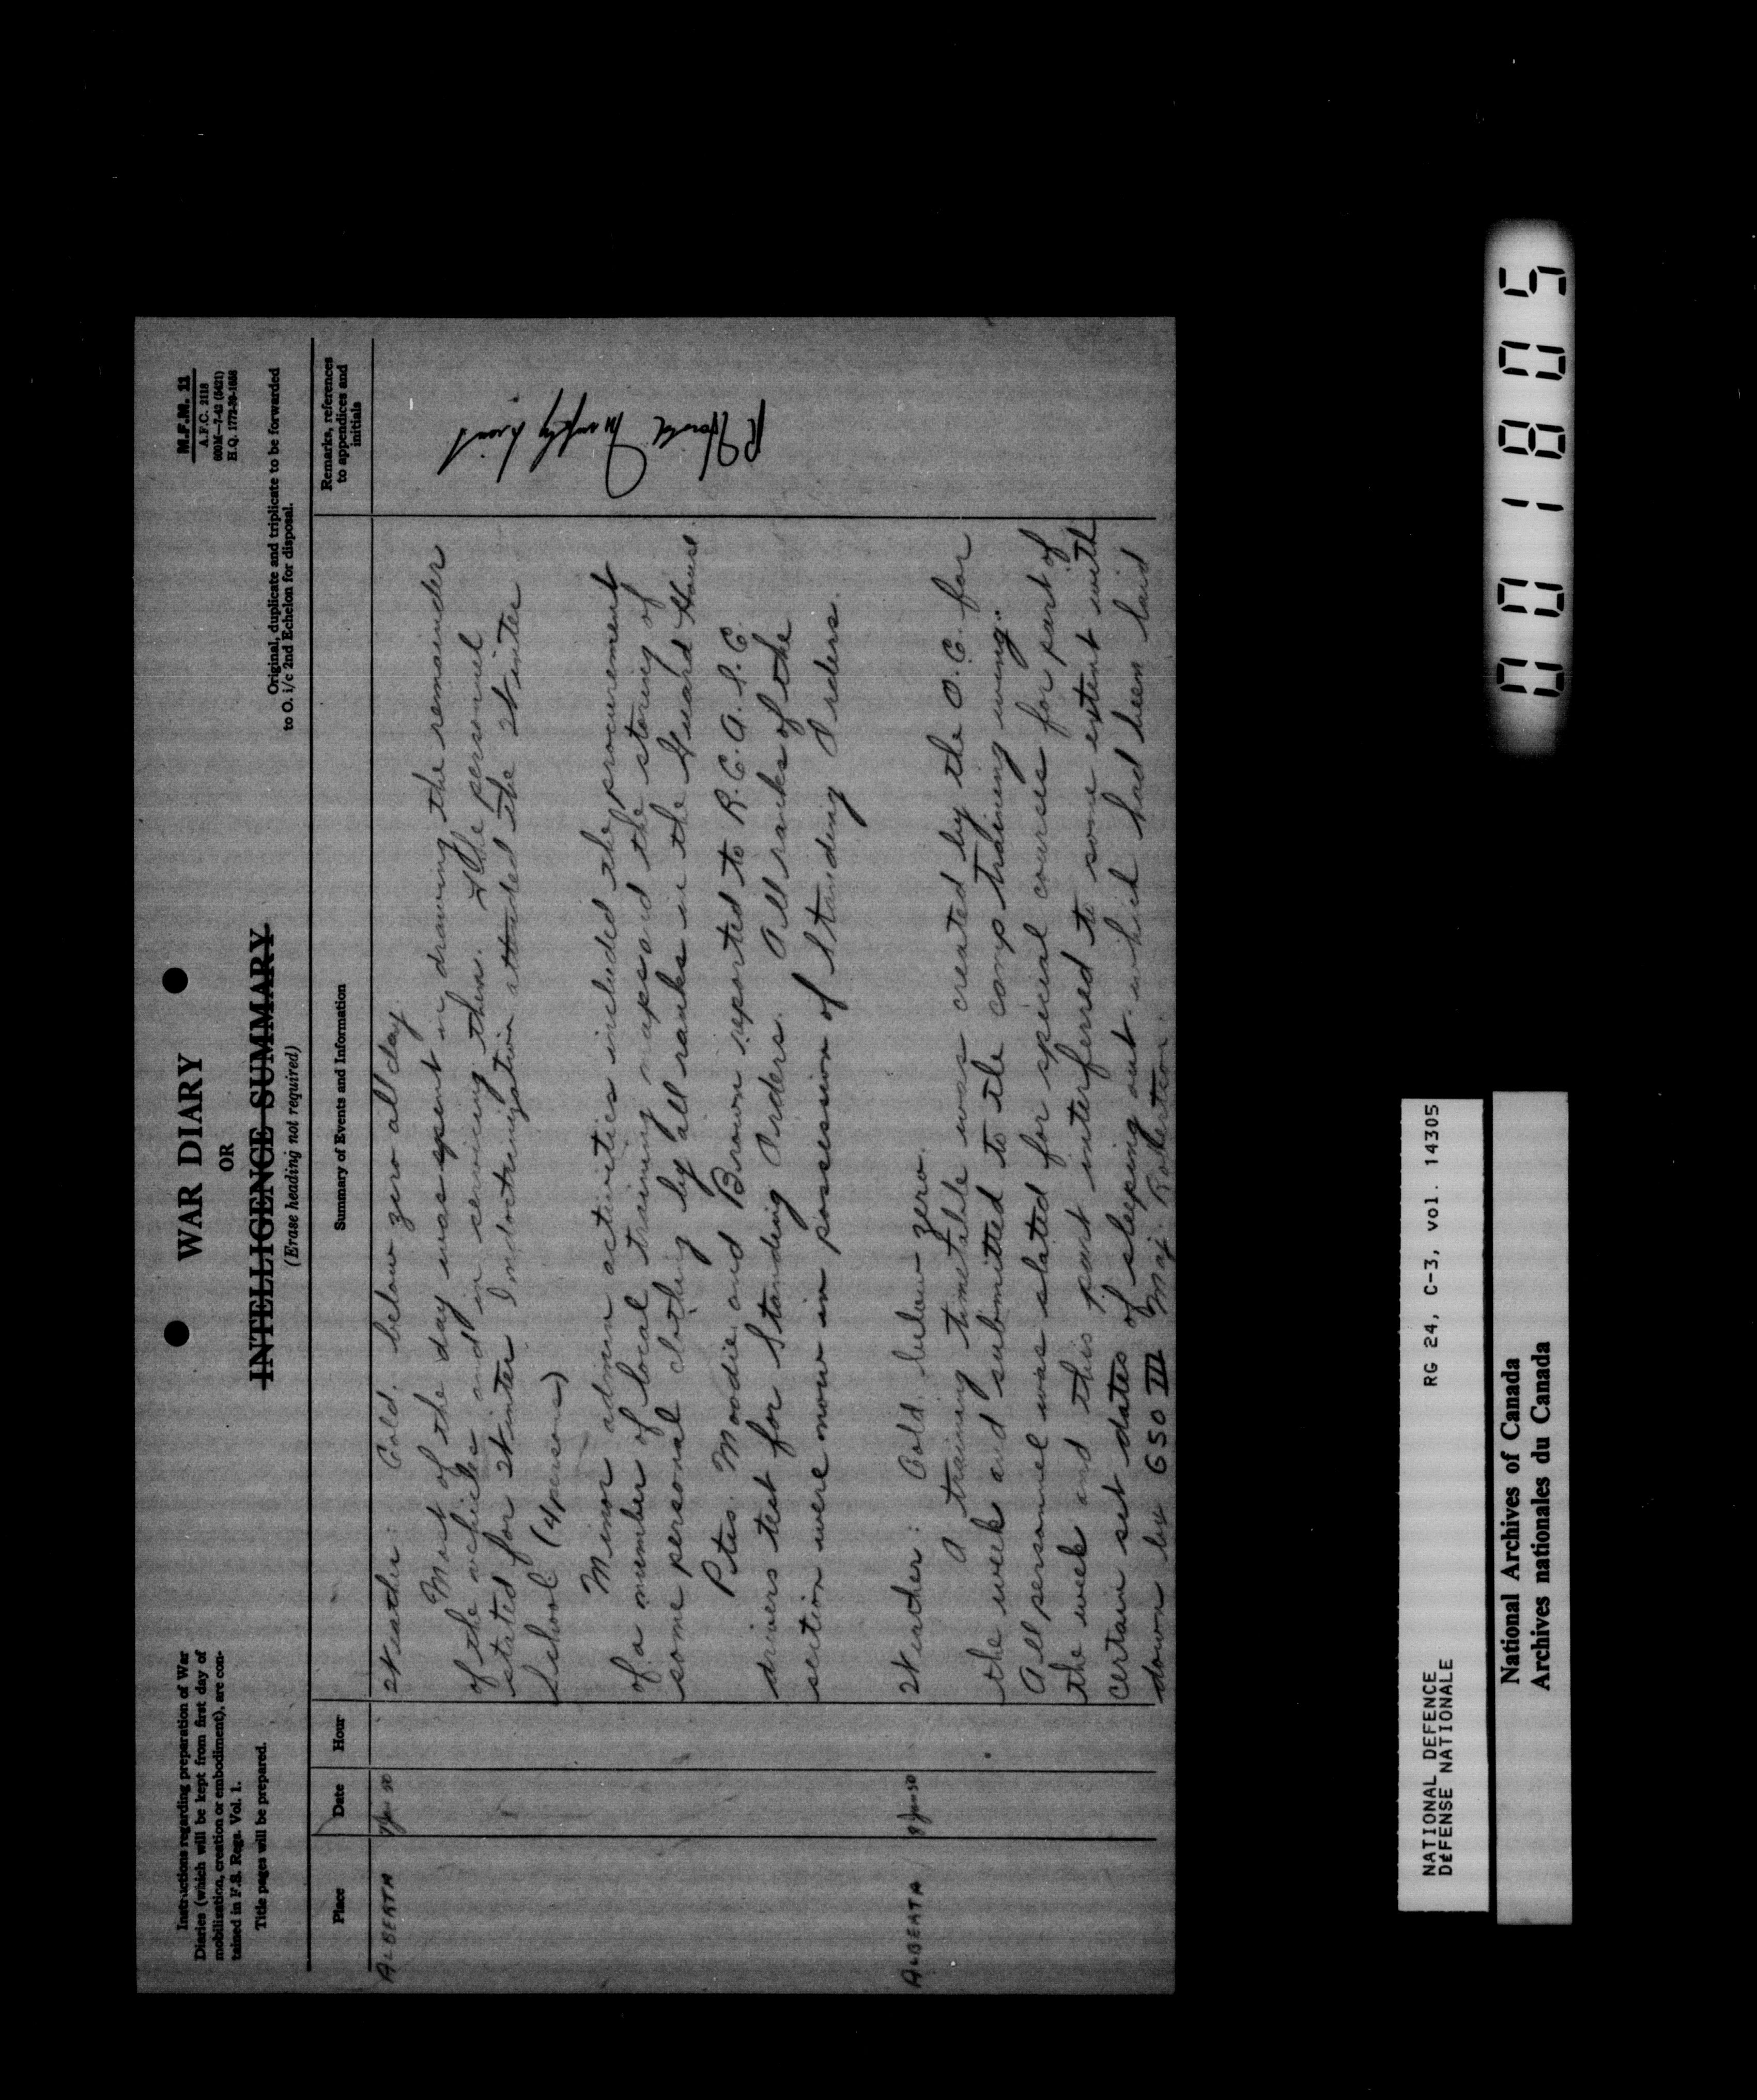 Instructions regarding preparation of War
Diaries (which will be kept from first day of
mobilization, creation or embodiment), are con-
tained in F.S. Regs. Vol. 1.
Title pages will be prepared.
WAR DIARY
OR
INTELLIGENCE SUMMARY
(Erase heading not required)
M.F.M. 11
A.F.C. 2118
600M—7-42 (5421)
H.Q. 1772-39-1658
Original, duplicate and triplicate to be forwarded
to O. i/c 2nd Echelon for disposal.
Place
Date
Hour
Summary of Events and Information
Remarks, references
to appendices and
initials
ALBERTA 7 Jan 50 Weather: Cold, below zero all day.
Most of the day was spent in drawing the remainder
of the vehicles and in servicing them. The personnel
slated for Winter Indoctrination attended the Winter
School (4 persons)
Minor admin activities included the procurement
of a number of local training maps and the storing of
some personal clothing by all ranks in the Guard House.
Ptes. Moodie and Brown reported to R.C.A.S.C.
drivers test for Standing Orders. All ranks of the
section were now in possession of Standing Orders.
ALBERTA 8 Jan 50 Weather: Cold, below zero.
A training timetable was created by the O.C. for
the week and submitted to the camp training wing.
All personnel was slated for special courses for part of
the week and this part interferred to some extent with
certain set dates of sleeping out which had been laid
down by GSO III Maj. Robertson.
001805
NATIONAL DEFENCE RG 24, C-3, vol. 14305
DÉFENSE NATIONALE
National Archives of Canada
Archives nationales du Canada